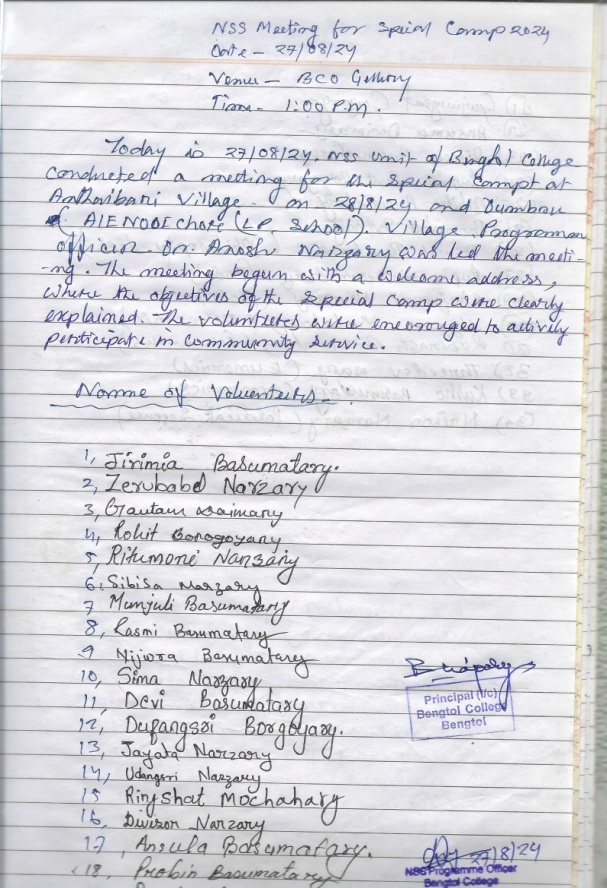 NSS Meeting for Speial Camp 2024
Date - 27/08/24
Venue - BCO Gallory
Time - 1:00 P.M.
Today is 27/08/24. NSS Unit of Bengtol College
conducted a meeting for the special Compt at
Anthaibari Village on 28/8/24 and Dumbru
( AIENODI chore (L.P. School). Village. Programm
officer Dr. Anosh Narzary was led the meeti-
-ng. The meeting begun with a welcome address,
where the objetives of the special camp were clearly
explained. The volunteers were encouraged to actively
perticipate in community service.
Name of Volunteers -
1, Jirimia Basumatary.
2, Zerubabel Narzary
3, Gautam Daimary
4, Rohit Borogoyary
5, Ritumoni Narzary
6, Sibisa Narzary
7 Munjuli Basumatary
8, Rasmi Basumatary
9 Nijwra Basumatary
10, Sima Narzary
11, Devi Basumatary
12, Dufangsri Borgoyary.
13, Jayata Narzary
14, Udangsri Narzary
15 Rinshat Mochahary
16, Divizor Narzary
17, Ansula Basumatary.
18, Probin Basumatary
Principal (I/c)
Bengtol College
Bengtol
27/8/24
NSS Programme Officer
Bengtol College